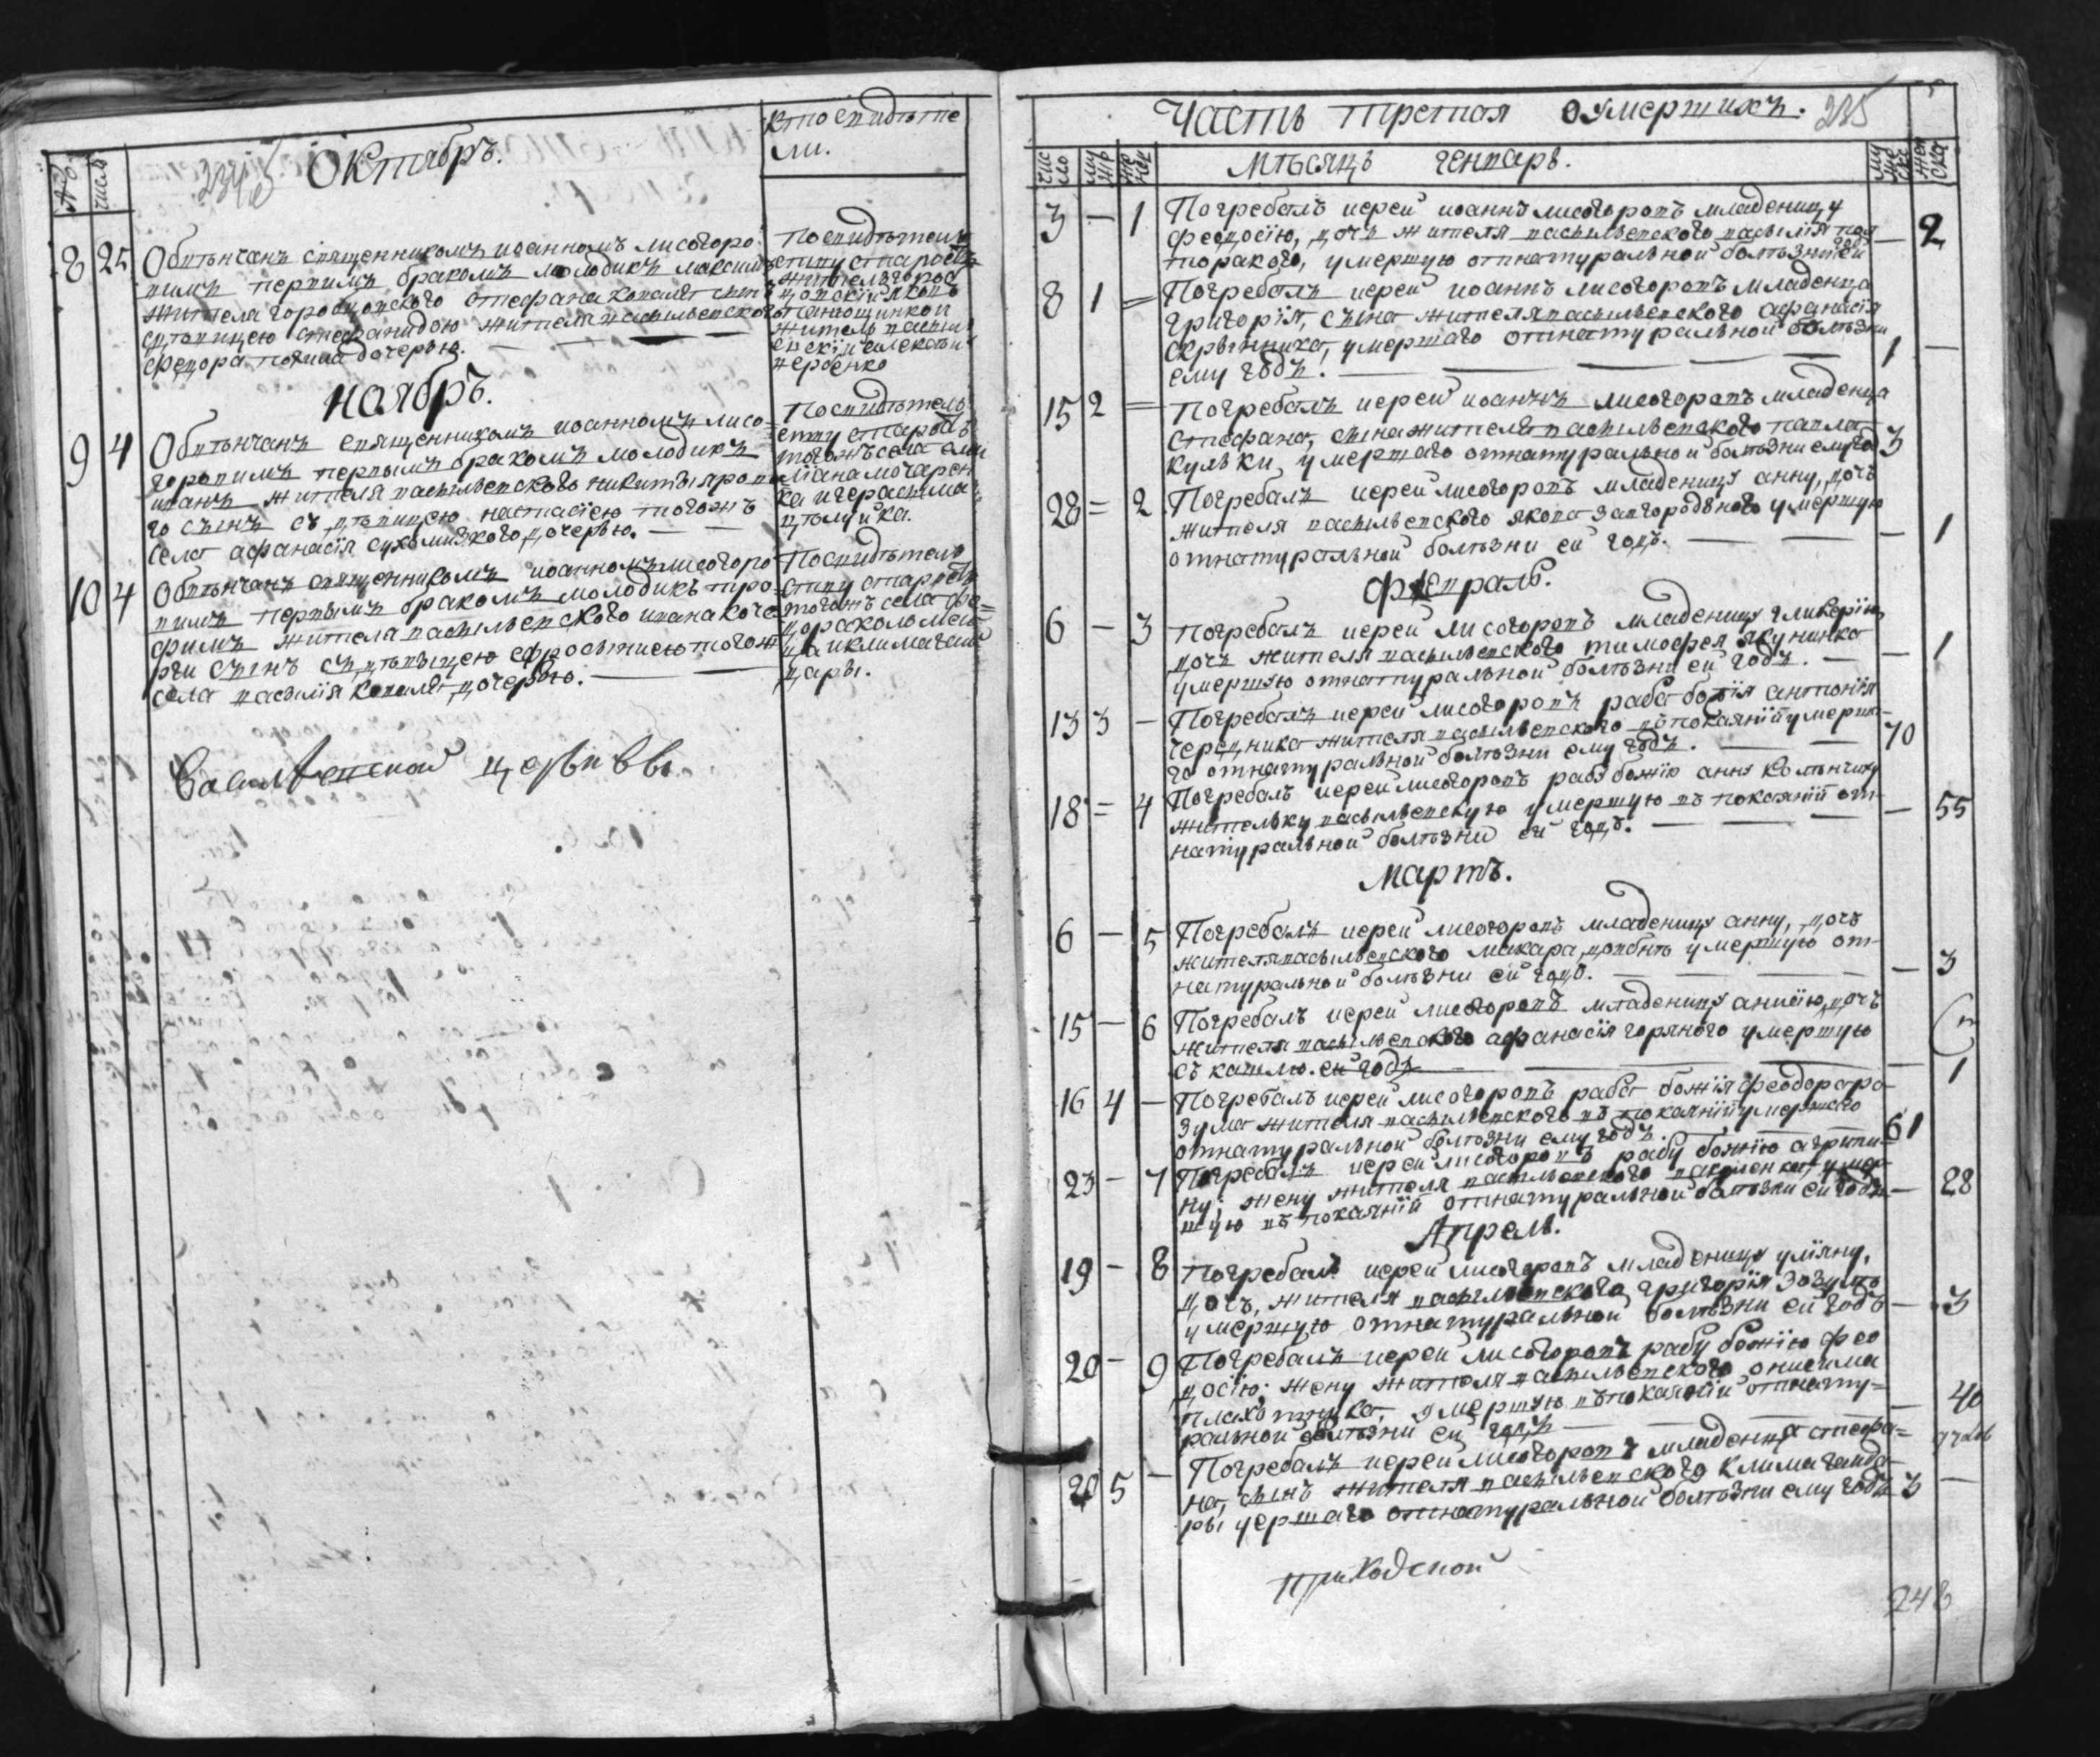 Октябръ.
кто свидѣте
ли.
№
число
8 25 Обвѣнчанъ священникомъ иоанномъ лисогоро
вимъ первимъ бракомъ молодикъ максимъ
жителя городцовского стефана коваля сынъ
съ дѣвицею стефанидою жителя василѣвского
феодора дочерью.
По свидѣтель
ству старостъ
житель город
цовскій яковъ
житель василѣ
вскій алексѣй
Ноябръ.
9 4 Обвѣнчанъ священникомъ иоанномъ лисо
горовимъ первымъ бракомъ молодикъ
иванъ жителя василѣвского никиты ярово
го сынъ съ дѣвицею настасіею тогожъ
села афанасія сухомлиского дочерью.
По свидѣтель
ству старостъ
тогожъ села еми
ліана мочарен
ка и герасима
10 4 Обвѣнчанъ священникомъ иоанномъ лисогоро
вимъ первымъ бракомъ молодикъ тро
фимъ жителя василѣвского ивана коче
рги сынъ съ дѣвицею ефросѣниею тогожъ
села василія коваля дочерью.
По свидѣтель
ству старостъ
тогожъ села фе=
дора коломей
ца и клима гай
дары.
Василѣвской церкви
Часть третая о умершихъ. 285
чис
ло
му
ж
же
нск
Мѣсяцъ генваръ.
му
жес
ска
жен
ска
3 — 1 Погребалъ иерей иоаннъ лисогоровъ младеницу
феодосію, дочь жителя василѣвского василія пол
торакого, умершую отнатуральной болѣзни ей — 2
8 1 = Погребалъ иерей иоаннъ лисогоровъ младенца
григорія, сына жителя василѣвского афанасія
скрынника, умершаго отнатуральной болѣзни
ему годъ. 1 —
15 2 = Погребалъ иерей иоаннъ лисогоровъ младенца
стефана, сына жителя василѣвского павла
кулѣки умершаго отнатуральной болѣзни ему год 3
28 = 2 Погребалъ иерей лисогоровъ младеницу анну, дочь
жителя василѣвского якова загородного умершую
отнатуральной болѣзни ей годъ. — 1
Февраль.
6 — 3 Погребалъ иерей лисогоровъ младеницу гликерію,
дочь жителя василѣвского тимофея якунинка
умершую отнатуральной болѣзни ей годъ. — 1
13 3 — Погребалъ иерей лисогоровъ раба божія антонія
чередника жителя василѣвского въ покаяніи умерша-
го отнатуральной болѣзни ему годъ. 70
18 = 4 Погребалъ иерей лисогоровъ рабу божію анну
жителку василѣвскую умершую въ покаяніи от-
натуральной болѣзни ей годъ. — 55
Мартъ.
6 — 5 Погребалъ иерей лисогоровъ младеницу анну, дочь
жителя василѣвского макара довбнѣ умершую от-
натуральной болѣзни ей годъ. — 3
15 — 6 Погребалъ иерей лисогоровъ младеницу анисію, дочь
жителя василѣвского афанасія горяного умершую
съ кашлю. ей годъ — 1
16 4 — Погребалъ иерей лисогоровъ раба божія феодора ро
зума жителя василѣвского въ покаяніи умершаго
отнатуральной болѣзни ему годъ. 61
23 — 7 Погребалъ иерей лисогоровъ рабу божію агрипи-
ну, жену жителя василѣвского умер
шую въ покаяніи отнатуральной болѣзни ей годъ — 28
Апрель.
19 — 8 Погребалъ иерей лисогоровъ младеницу уліяну,
дочь, жителя василѣвского григорія
умершую отнатуральной болѣзни ей годъ — 3
20 — 9 Погребалъ иерей лисогоровъ рабу божію фео
досію, жену жителя василѣвского онисима
плахотника, умершую въ покаяніи отнату=
ральной болѣзни ей годъ — 40
20 5 — Погребалъ иерей лисогоровъ младенца стефа=
на, сынъ жителя василѣвского клима гайда
ры уершаго отнатуральной болѣзни ему годъ 3 —
приходской